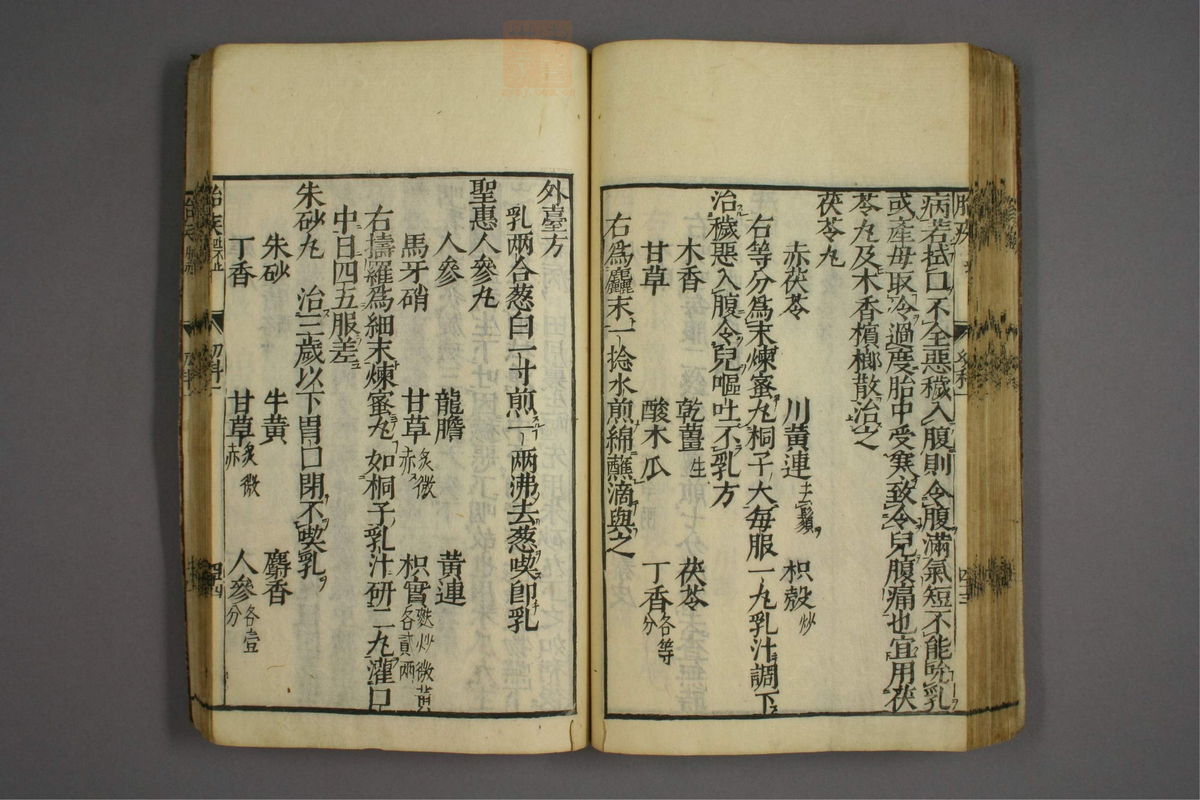 病若拭口不全惡穢入腹則令腹滿氣短不能吮乳
或產母取冷過度胎中受寒致令兒腹痛也宜用茯
苓丸及木香檳榔散治之
茯苓丸
赤茯苓 川黃連去鬚 枳殼炒
右等分爲末煉蜜丸桐子大每服一丸乳汁調下
治穢惡入腹令兒嘔吐不乳方
木香 乾薑生 茯苓
甘草 酸木瓜 丁香各等分
右爲麤末一捻水煎綿蘸滴與之
外臺方
乳兩合葱白一寸煎一兩沸去葱喫卽乳
聖惠人參丸
人參 龍膽 黃連
馬牙硝 甘草炙微赤 枳實麩炒微黃各貳兩
右擣羅爲細末煉蜜丸如桐子乳汁研二丸灌口
中日四五服差
朱砂丸 治三歲以下胃口閉不喫乳
朱砂 牛黃 麝香
丁香 甘草炙微赤 人參各壹分